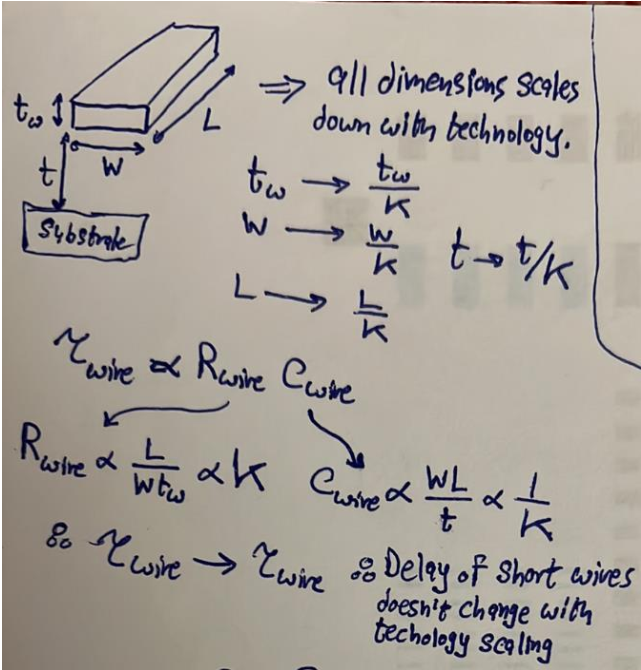 ⇒ all dimensions scales
down with technology.
t_w
L
W
t
Substrate
t_w → t_w/K
W → W/K t → t/K
L → L/K
τ_wire ∝ R_wire C_wire
R_wire ∝ L/(W t_w) ∝ K C_wire ∝ WL/t ∝ 1/K
∴ τ_wire → τ_wire ∴ Delay of short wires
doesn't change with
techology scaling